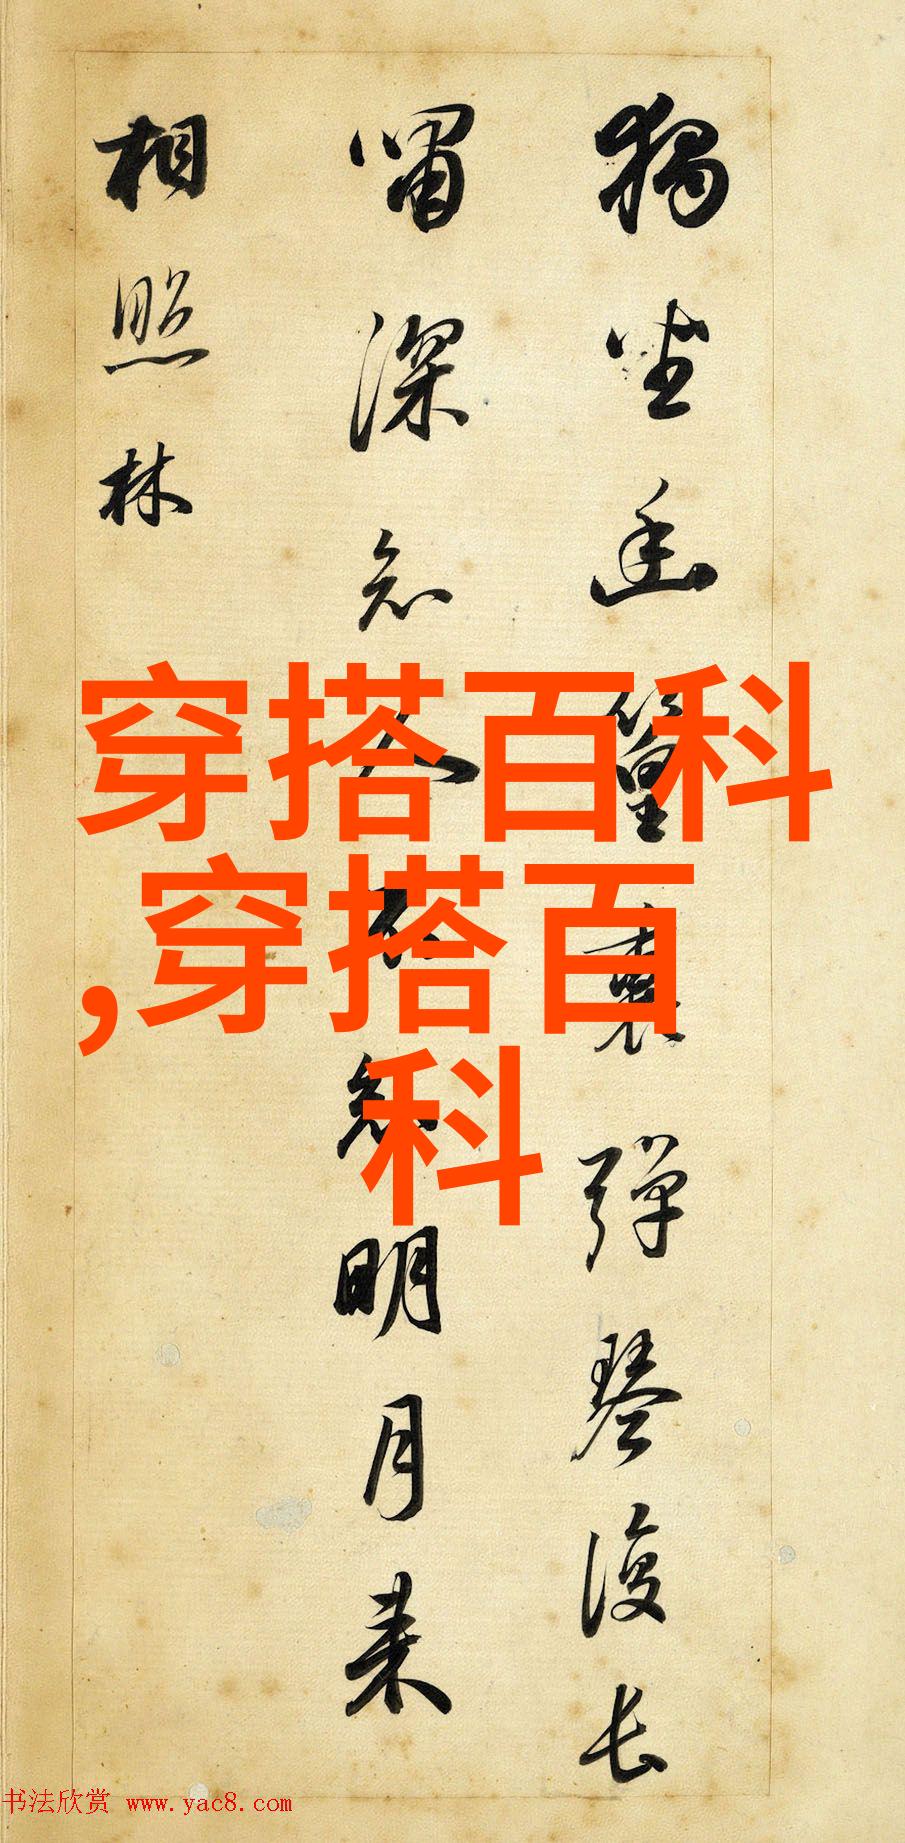 獨坐幽篁裏彈琴復長
嘯深知人不知明月来
相照林
穿搭百科
,穿搭百
科
书法欣赏 www.yac8.com